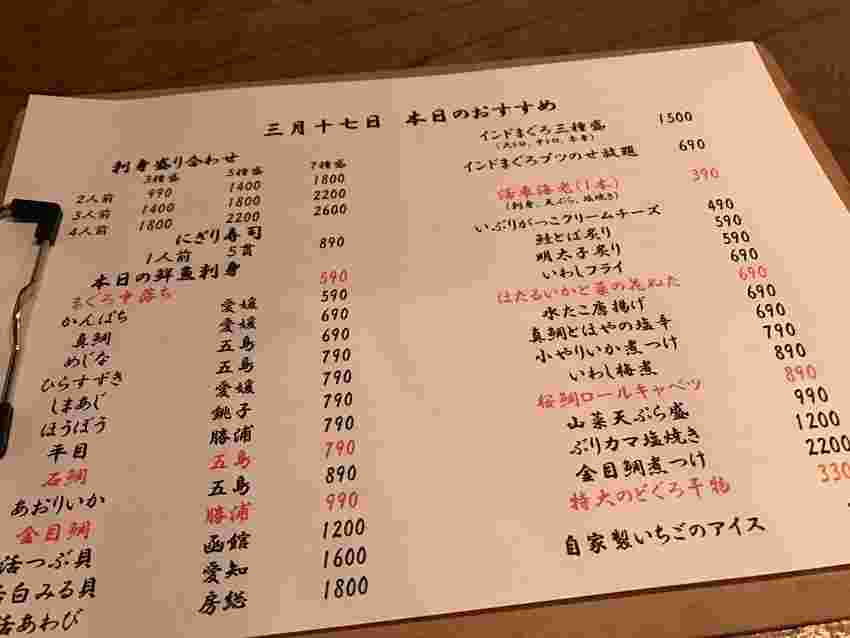 三月十七日 本日のおすすめ
刺身盛り合わせ
3種盛 5種盛 7種盛
2人前 990 1400 1800
3人前 1400 1800 2200
4人前 1800 2200 2600
にぎり寿司
1人前 5貫 890
本日の鮮魚刺身
まぐろ中落ち 590
かんぱち 愛媛 590
真鯛 愛媛 690
めじな 五島 690
ひらすずき 五島 790
しまあじ 愛媛 790
ほうぼう 銚子 790
平目 勝浦 790
石鯛 五島 790
あおりいか 五島 890
金目鯛 勝浦 990
活つぶ貝 函館 1200
活白みる貝 愛知 1600
活あわび 房総 1800
インドまぐろ三種盛 1500
(大トロ、中トロ、赤身)
インドまぐろブツのせ放題 690
活車海老(1本) 390
(刺身、天ぷら、塩焼き)
いぶりがっこクリームチーズ 490
鮭とば炙り 590
明太子炙り 590
いわしフライ 590
ほたるいかと菜の花ぬた 690
水たこ唐揚げ 690
真鯛とほやの塩辛 690
小やりいか煮つけ 790
いわし梅煮 890
桜鯛ロールキャベツ 890
山菜天ぷら盛 990
ぶりカマ塩焼き 1200
金目鯛煮つけ 2200
特大のどぐろ干物 330
自家製いちごのアイス